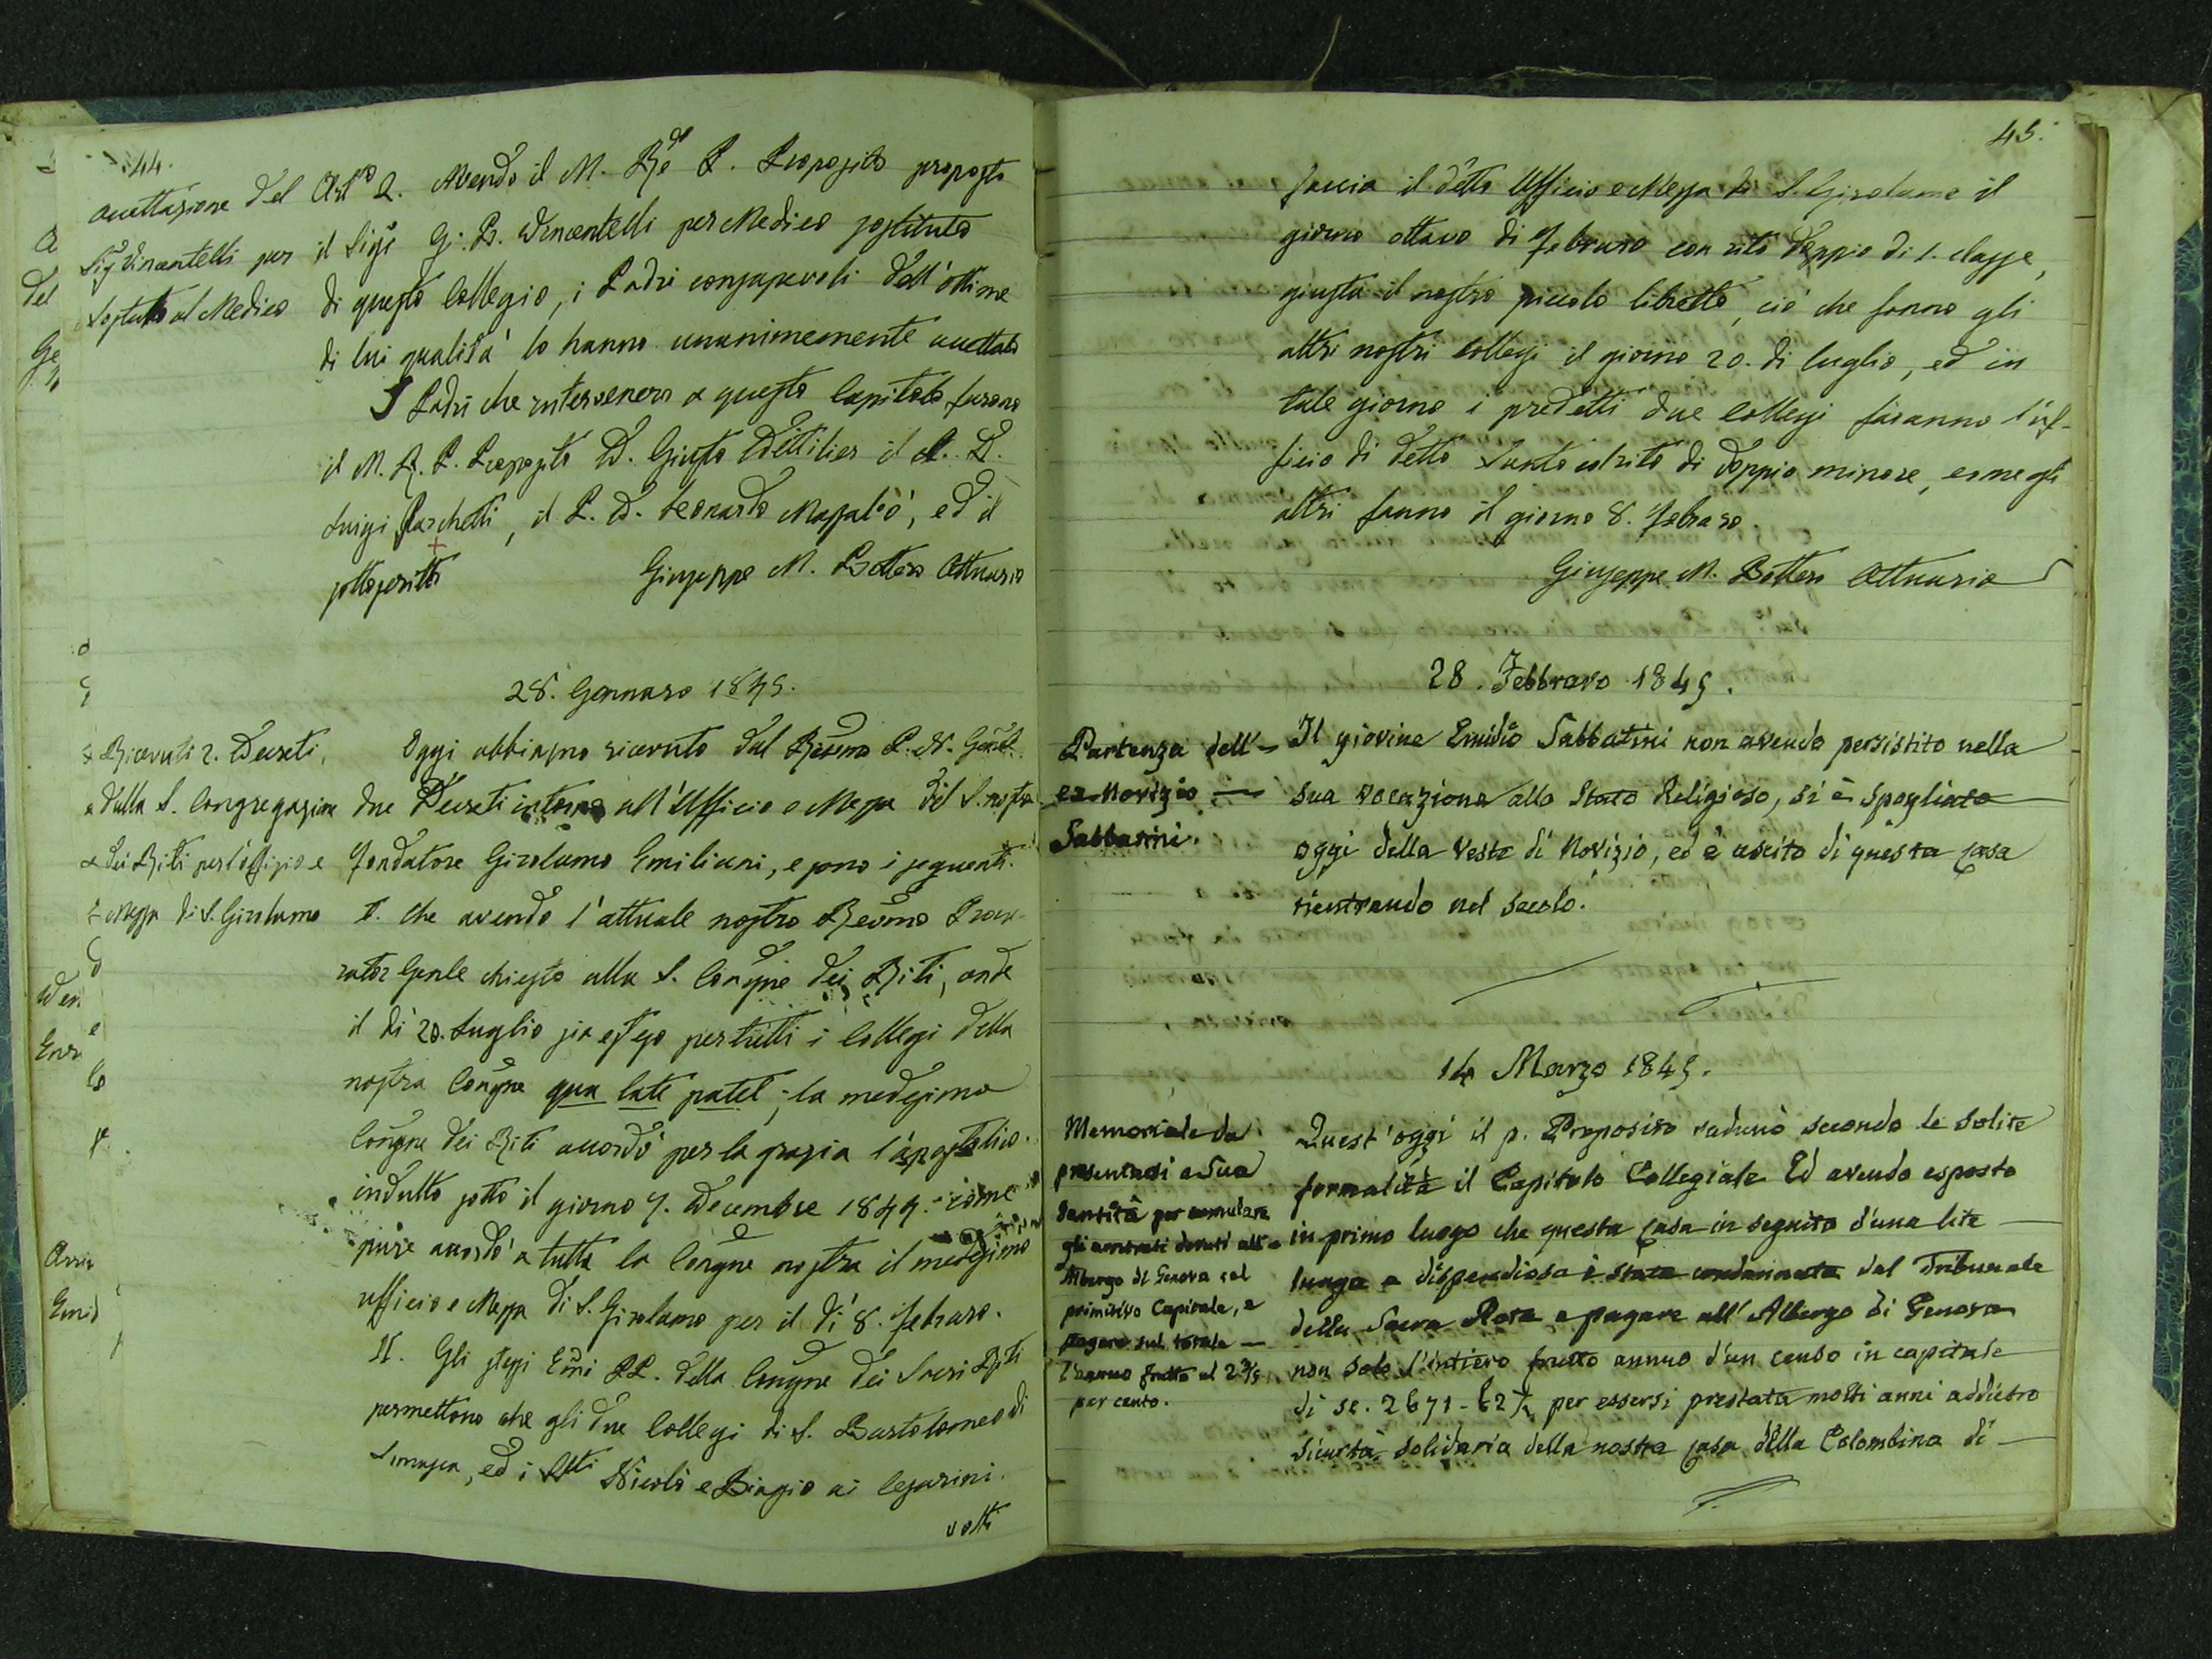 44.
Accettazione del
Sig. Vincentelli per
Sostituto al Medico
Art.º 2. Avendo il M. Rdo P. Preposito proposto
il Sigr G. B. Vincentelli per Medico sostituto
di questo Collegio, i Padri consapevoli dell'ottime
di lui qualità lo hanno unanimemente accettato
I Padri che intervenero a questo Capitolo furono
il M. R. P. Preposito D. Giusto il P. D.
Luigi Parchetti, il P. D. Leonardo ed il
sottoscritto Giuseppe M. Bottero Attuario
28. Gennaro 1845.
Ricevuti 2. Decreti
dalla S. Congregazione
dei Riti per l'offizio e
Messa di S. Girolamo
Oggi abbiamo ricevuto dal Revmo P. N. Genle
due Decreti intorno all'Ufficio e Messa del S. nostro
Fondatore Girolamo Emiliani, e sono i seguenti.
I. che avendo l'attuale nostro Revmo Procu-
rator Genle chiesto alla S. Congne dei Riti, onde
il dì 20. Luglio sia esteso per tutti i Collegi della
nostra Congne qua late patet; la medesima
Congne dei Riti accordò per la grazia l'apostolico
indulto sotto il giorno 7. Decembre 1844. come
pure accordò a tutta la Congne nostra il medesimo
ufficio e Messa di S. Girolamo per il dì 8. Febraro.
II. Gli stessi Emi PP. della Congne dei Sacri Riti
permettono che gli due Collegi di S. Bartolomeo di
Somasca, ed i SSti Nicolò e Biagio ai Cesarini
volti
45.
faccia il detto Ufficio e Messa di S. Girolamo il
giorno ottavo di Febraro con rito doppio di 1. classe,
giusta il nostro piccolo libretto, ciò che fanno gli
altri nostri Collegi il giorno 20. di luglio, ed in
tale giorno i predetti due Collegi faranno l'uf-
ficio di detto Santo col rito di doppio minore, come gli
altri fanno il giorno 8. febraro.
Giuseppe M. Bottero Attuario
28. Febbraro 1845.
Partenza dell'
ex Novizio
Sabbatini.
Il giovine Emidio Sabbatini non avendo persistito nella
sua vocazione allo Stato Religioso, si è spogliato
oggi della veste di Novizio, ed è uscito di questa Casa
rientrando nel secolo.
14 Marzo 1845.
Memoriale da
presentarsi a Sua
Santità per cumulare
gli arretrati dovuti all'
Albergo di Genova col
primitivo Capitale, e
pagare sul totale
l'annuo frutto al 2 3/5
per cento.
Quest'oggi il p. Preposito radunò secondo le solite
formalità il Capitolo Collegiale Ed avendo esposto
in primo luogo che questa Casa in seguito d'una lite
lunga e dispendiosa è stata condannata dal Tribunale
della Sacra Rota a pagare all'Albergo di Genova
non solo l'intiero frutto annuo d'un censo in capitale
di sc. 2671 - per essersi prestata molti anni addietro
sicurtà solidaria della nostra Casa della Colombina di